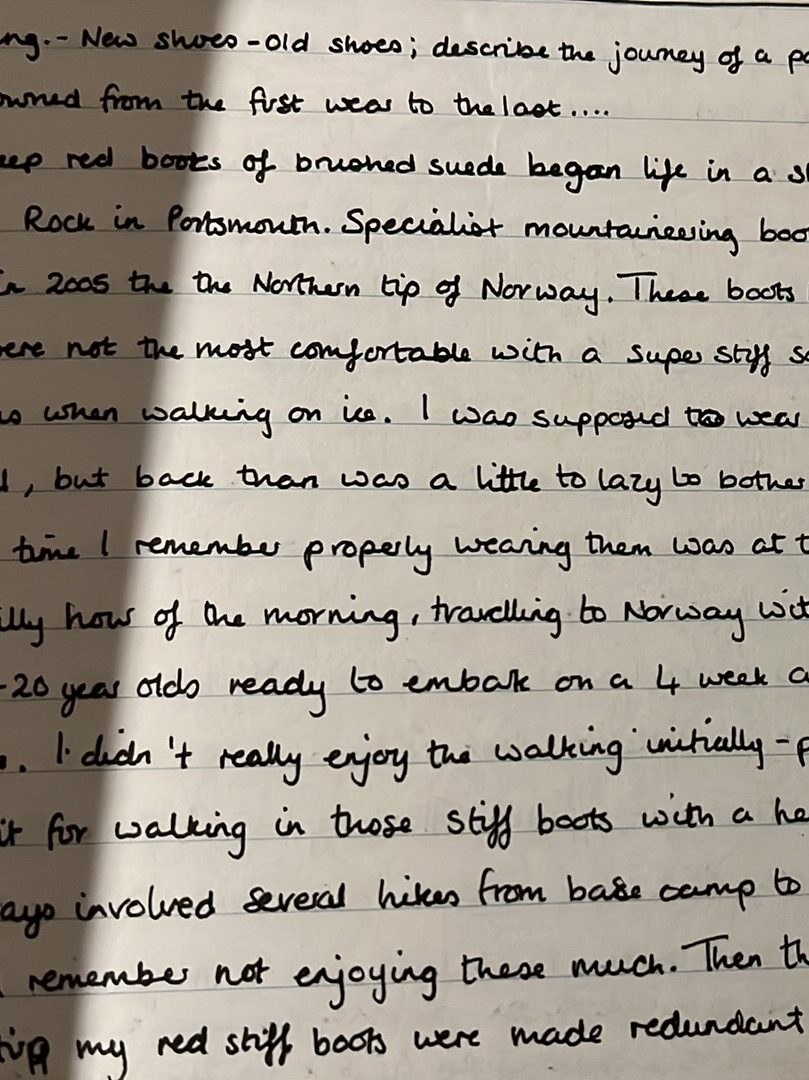 ng. - New shoes - old shoes; describe the journey of a pa
owned from the first wear to the last ....
eep red boots of brushed suede began life in a sh
Rock in Portsmouth. Specialist mountaineering boo
in 2005 the the Northern tip of Norway. These boots
ere not the most comfortable with a super stiff so
s when walking on ice. I was supposed to wear
, but back than was a little to lazy to bother
time I remember properly wearing them was at t
illy hour of the morning, travelling to Norway wit
-20 year olds ready to embark on a 4 week a
. I didn't really enjoy the walking initially - p
it for walking in those stiff boots with a he
ays involved several hikes from base camp to
remember not enjoying these much. Then th
my red stiff boots were made redundant